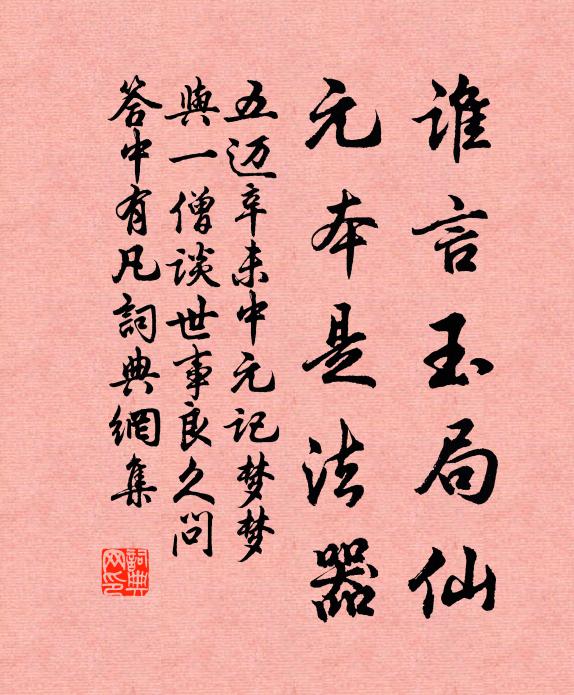 谁言玉局仙
元本是法器
五迈辛未中元记梦梦
與一僧談世事良久问
答中有凡詞典網集
詞典
网印